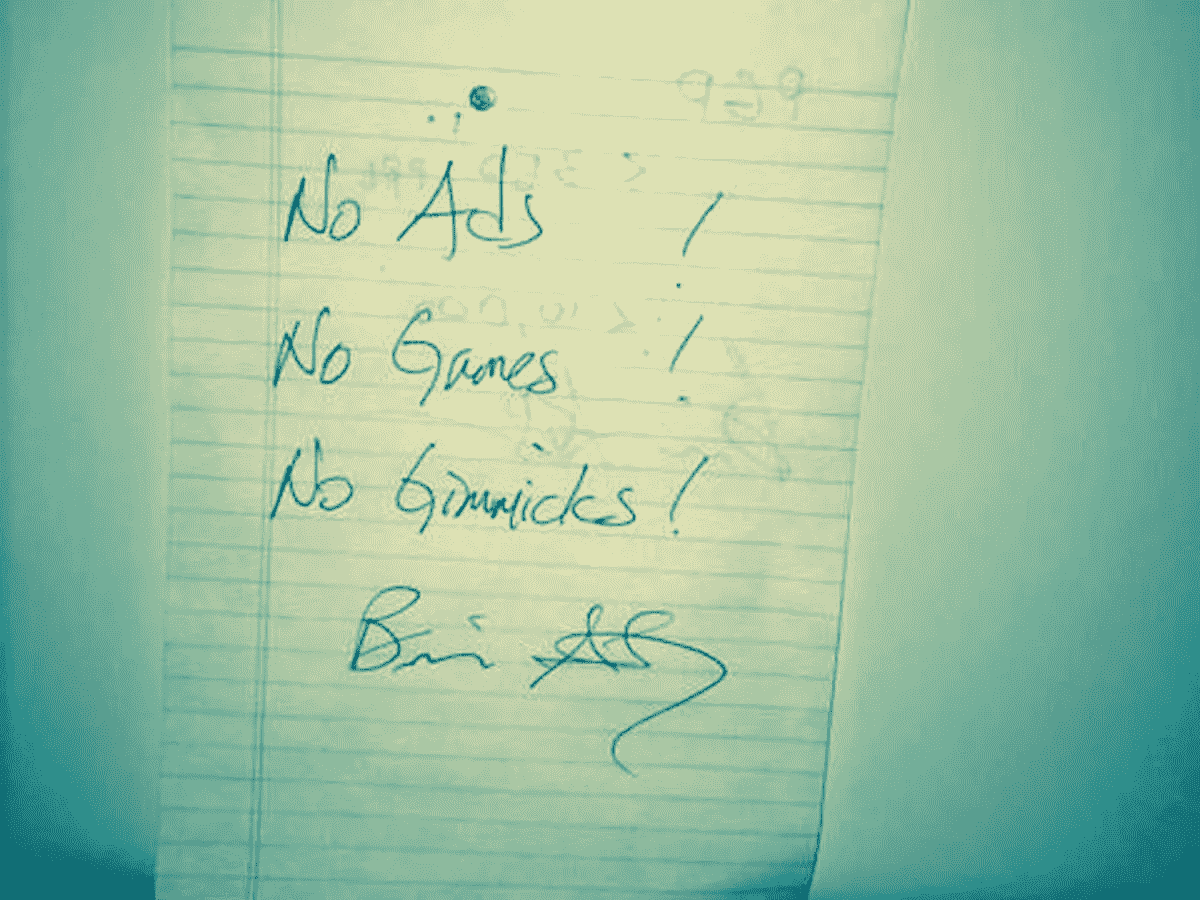 No Ads !
No Games !
No Gimmicks !
Brian